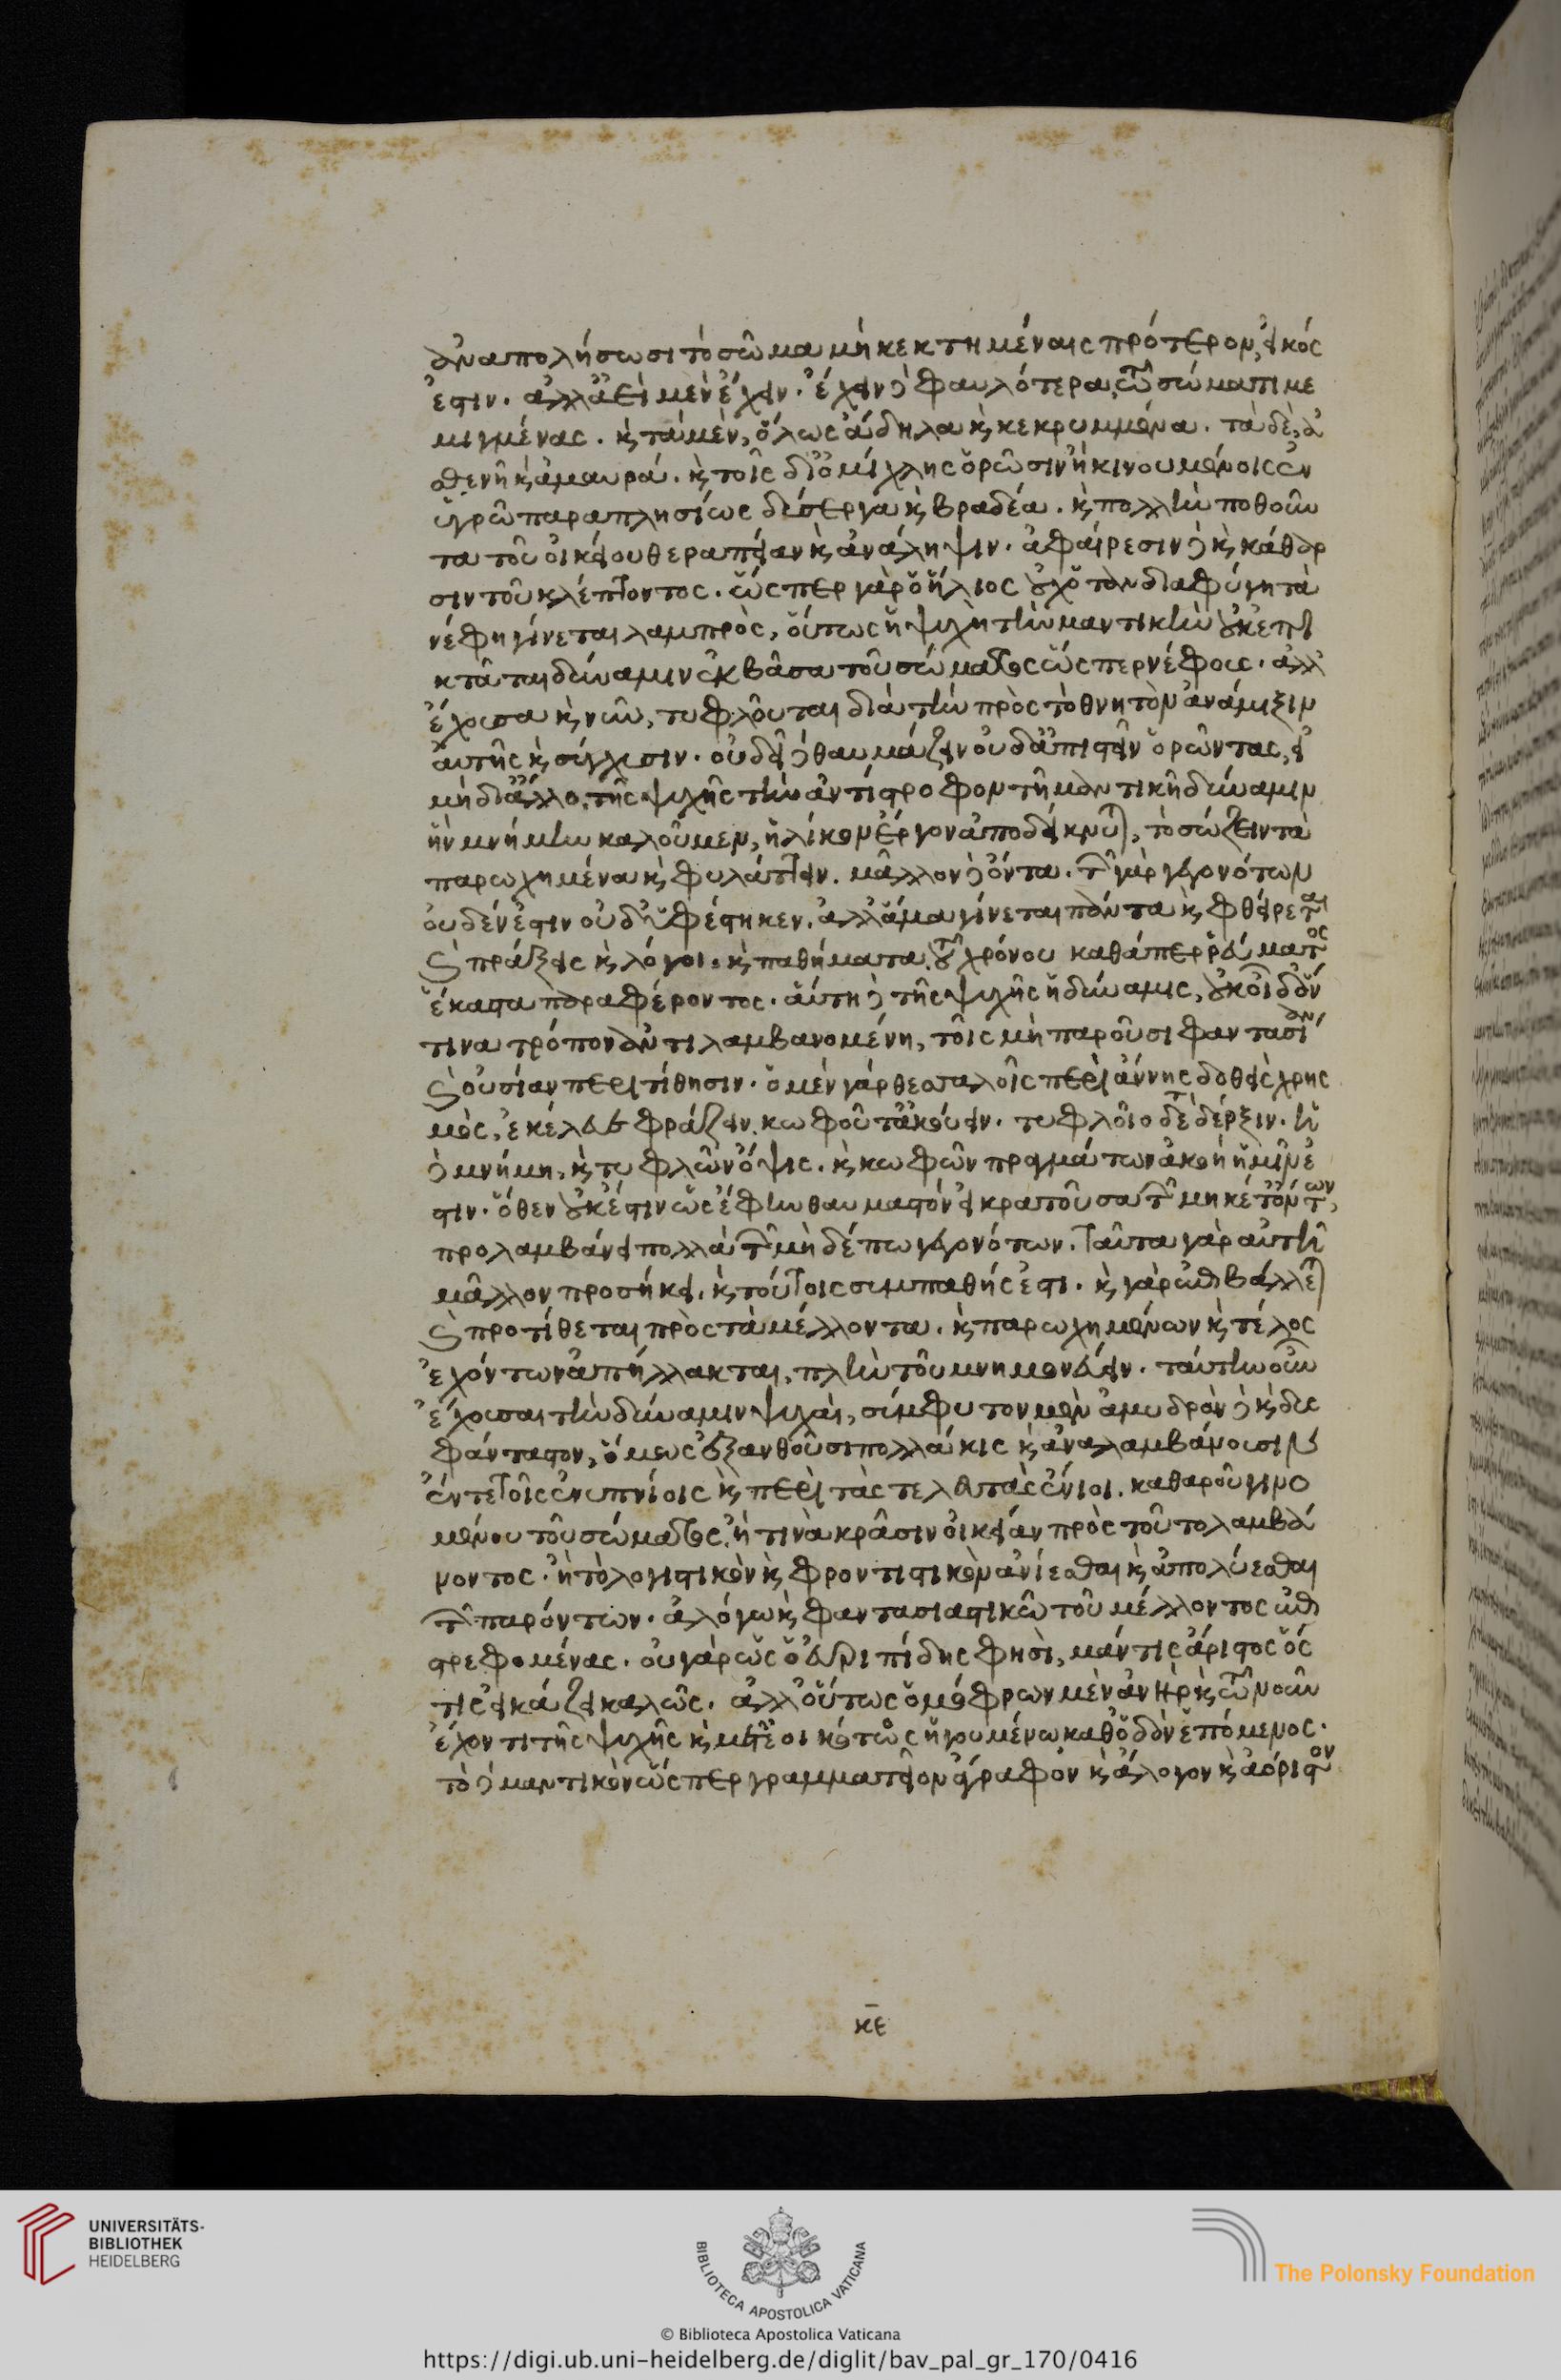 ἂν ἀπολήσωσι τὸ σῶμα μὴ κεκτημέναις πρότερον, εἰκός
ἐστιν. ἀλλ' ἀεὶ μὲν ἔχειν. ἔχειν δὲ φαυλότερα, τῶ σώματι με
μιγμένας. ϗ τὰ μὲν, ὅλως ἄδηλα ϗ κεκρυμμένα. τὰ δὲ, ἀ
σθενῆ ϗ ἀμαυρά. ϗ τοῖς δι' ὁμίχλης ὁρῶσιν ἢ κινουμένοις ἐν
ὑγρῶ παραπλησίως δύσεργα ϗ βραδέα. ϗ πολλὴν ποθοῦν
τα τοῦ οἰκείου θεραπείαν ϗ ἀνάληψιν. ἀφαίρεσιν δὲ ϗ κάθαρ
σιν τοῦ κλέπτοντος. ὥσπερ γὰρ ὁ ἥλιος οὐχ' ὅταν διαφύγη τὰ
νέφη γίνεται λαμπρὸς, οὕτως ἡ ψυχὴ τὴν μαντικὴν οὐκ ἐπι
κτᾶται δύναμιν ἐκβᾶσα τοῦ σώματος ὥσπερ νέφους. ἀλλ'
ἔχουσα ϗ νῦν, τυφλοῦται διὰ τὴν πρὸς τὸ θνητὸν ἀνάμιξιν
αὐτῆς ϗ σύγχυσιν. οὐ δεῖ δὲ θαυμάζειν οὐδ' ἀπιστεῖν ὁρῶντας, εἰ
μὴ δι' ἄλλο, τῆς ψυχῆς τὴν ἀντίστροφον τῆ μαντικῆ δύναμιν
ἣν μνήμην καλοῦμεν, ἡλίκον ἔργον ἀποδείκνυται, τὸ σώζειν τὰ
παρωχημένα ϗ φυλάττειν. μᾶλλον δὲ ὄντα. τῶν γὰρ γεγονότων
οὐδέν ἐστιν οὐδ' ὑφέστηκεν. ἀλλ' ἅμα γίνεται πάντα ϗ φθείρεται
ϗ πράξεις ϗ λόγοι. ϗ παθήματα, τοῦ χρόνου καθάπερ ῥεύματος
ἕκαστα παραφέροντος. αὕτη δὲ τῆς ψυχῆς ἡ δύναμις, οὐκ οἶδ' ὅν
τινα τρόπον ἀντιλαμβανομένη, τοῖς μὴ παροῦσι φαντασίαν
ϗ οὐσίαν περιτίθησιν. ὁ μὲν γὰρ θεσσαλοῖς περὶ ἄννης δοθεὶς χρησ
μὸς, ἐκέλευε φράζειν κωφοῦ τ' ἀκούειν. τυφλοῖό τε δέρξιν. ἡ
δὲ μνήμη, ϗ τυφλῶν ὄψις. ϗ κωφῶν πραγμάτων ἀκοὴ ἡμῖν ἐ
στιν. ὅθεν οὐκ ἔστιν ὡς ἔφην θαυμαστόν εἰ κρατοῦσα τῶν μηκέτ' ὄντων,
προλαμβάνει πολλὰ τῶν μὴ δέπω γεγονότων. ταῦτα γὰρ αὐτῆ
μᾶλλον προσήκει. ϗ τούτοις συμπαθής ἐστι. ϗ γὰρ ἐπιβάλλεται
ϗ προτίθεται πρὸς τὰ μέλλοντα. ϗ παρωχημένων ϗ τέλος
ἐχόντων ἀπήλλακται, πλὴν τοῦ μνημονεύειν. ταύτην οὖν
ἔχουσαι τὴν δύναμιν ψυχαὶ, σύμφυτον μὲν ἀμυδρὰν δὲ ϗ δυσ
φάνταστον, ὅμως ἐξανθοῦσι πολλάκις ϗ ἀναλαμβάνουσιν
ἔν τε τοῖς ἐνυπνίοις ϗ περὶ τὰς τελευτὰς ἔνιοι. καθαροῦ γινο
μένου τοῦ σώματος, ἤ τινὰ κρᾶσιν οἰκείαν πρὸς τοῦτο λαμβά
νοντος. ἢ τὸ λογιστικὸν ϗ φροντιστικὸν ἀνίεσθαι ϗ ἀπολύεσθαι
τῶν παρόντων. ἀλόγω ϗ φαντασιαστικῶ τοῦ μέλλοντος ἐπι
στρεφομένας. οὐ γὰρ ὡς ὁ εὐριπίδης φησὶ, μάντις ἄριστος ὅσ
τις εἰκάζει καλῶς. ἀλλ' οὕτως ὁμόφρων μὲν ἀνὴρ ϗ τῶ νοῦν
ἔχοντι τῆς ψυχῆς ϗ μετ' εἰκότως ἡγουμένω καθ' ὁδὸν ἑπόμενος.
τὸ δὲ μαντικὸν ὥσπερ γραμματεῖον ἄγραφον ϗ ἄλογον ϗ ἀόριστον
κε
UNIVERSITÄTS-
BIBLIOTHEK
HEIDELBERG
BIBLIOTECA APOSTOLICA VATICANA
© Biblioteca Apostolica Vaticana
The Polonsky Foundation
https://digi.ub.uni-heidelberg.de/diglit/bav_pal_gr_170/0416